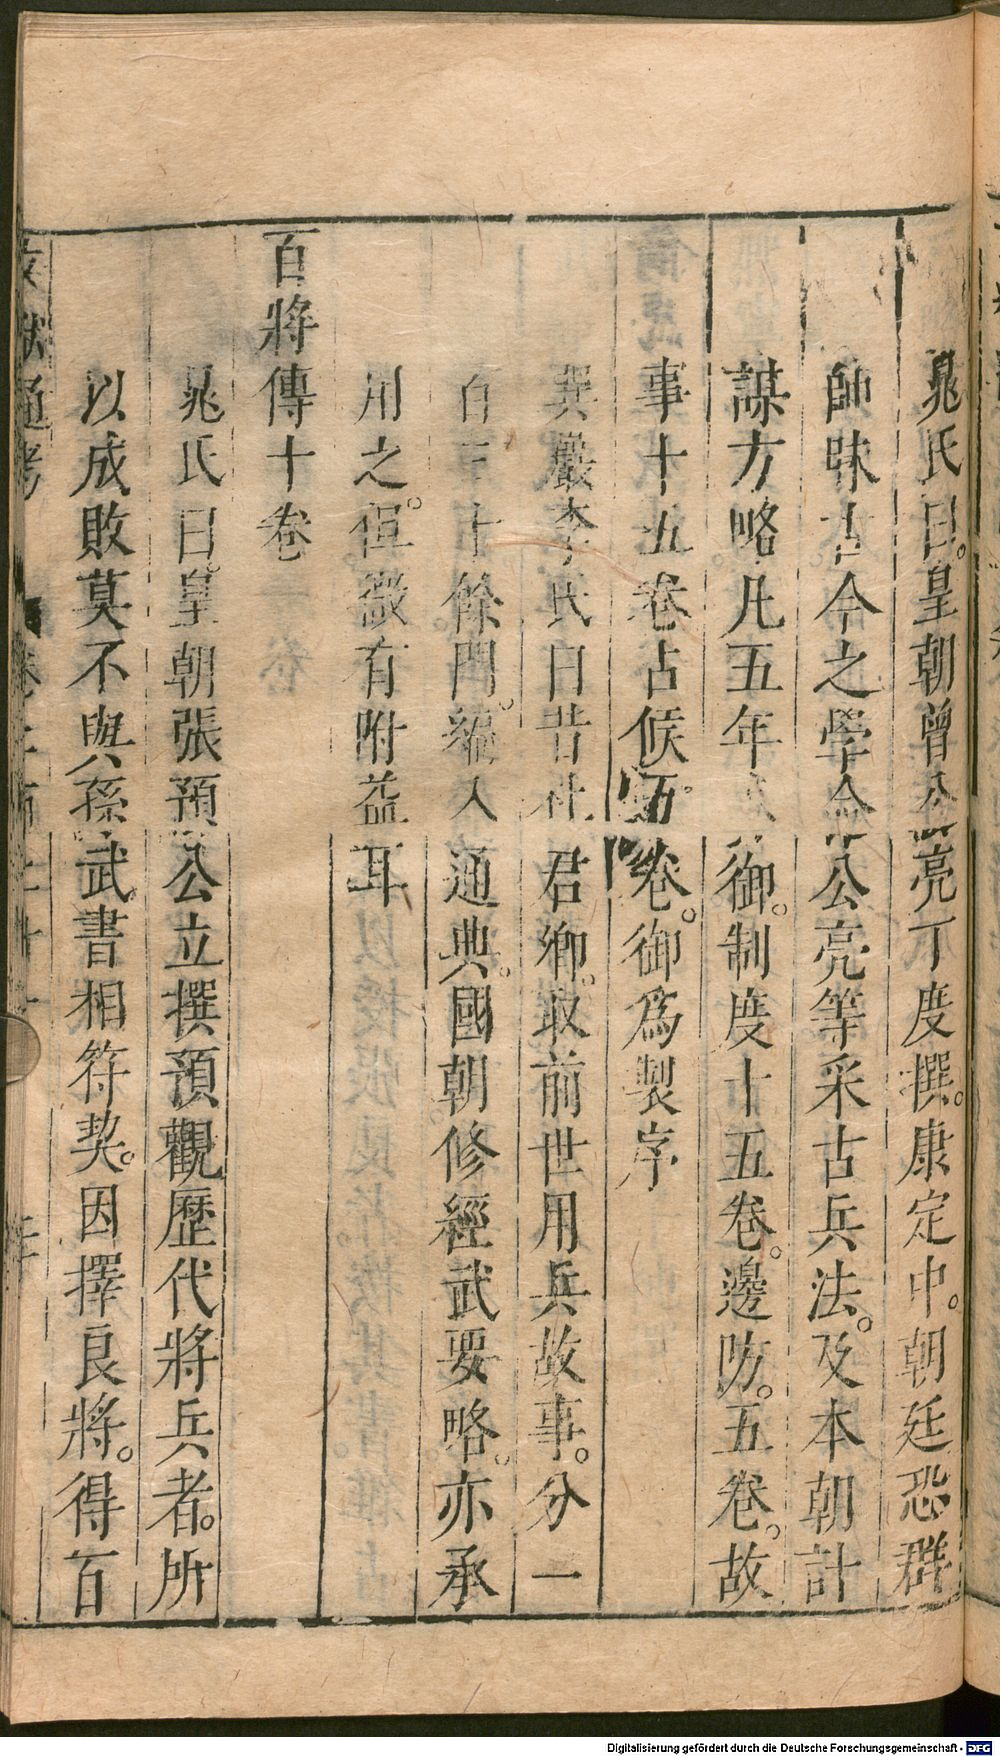 晁氏曰。皇朝曾公亮丁度撰。康定中。朝廷恐群
帥昧古今之學命公亮等采古兵法。及本朝計
謀方略凡五年 御。制度十五卷。邊防。五卷。故
事十五卷占候五卷。御為製序
巽巖李氏曰昔杜君卿。取前世用兵故事。分一
百三十餘門。編入通典。國朝修經武要略。亦承
用之。但微有附益耳
百將傳十卷
晁氏曰。皇朝張預公立撰預觀歷代將兵者。所
以成敗莫不與孫武書相符契。因擇良將。得百
文獻通考 卷二百二十一
Digitalisierung gefördert durch die Deutsche Forschungsgemeinschaft - DFG